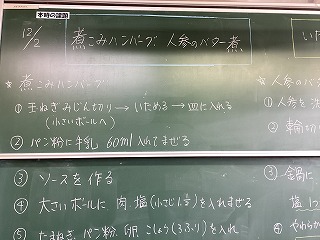 本時の課題
12/2
煮こみハンバーグ 人参のバター煮
いた
☆ 煮こみハンバーグ
① 玉ねぎみじん切り→いためる→皿に入れる
(小さいボールへ)
② パン粉に牛乳 60ml入れてまぜる
③ ソースを作る
④ 大きいボールに 肉、塩(小さじ1/2)を入れまぜる
⑤ たまねぎ、パン粉、卵、こしょう(3ふり)を入れ
☆ 人参のバタ
① 人参を洗
② 輪切り
③ 鍋に
塩 1つ
④ やわらか